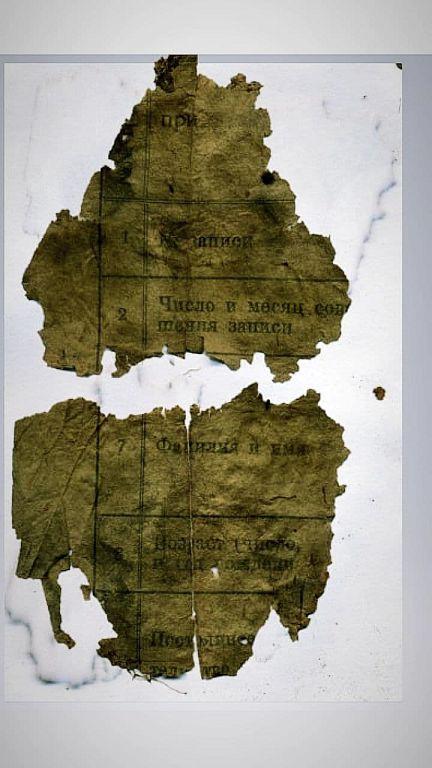 при
1 № записи
2 Число и месяц сов
шения записи
7 Фамилия и имя
8 Возраст (число,
и год рождени